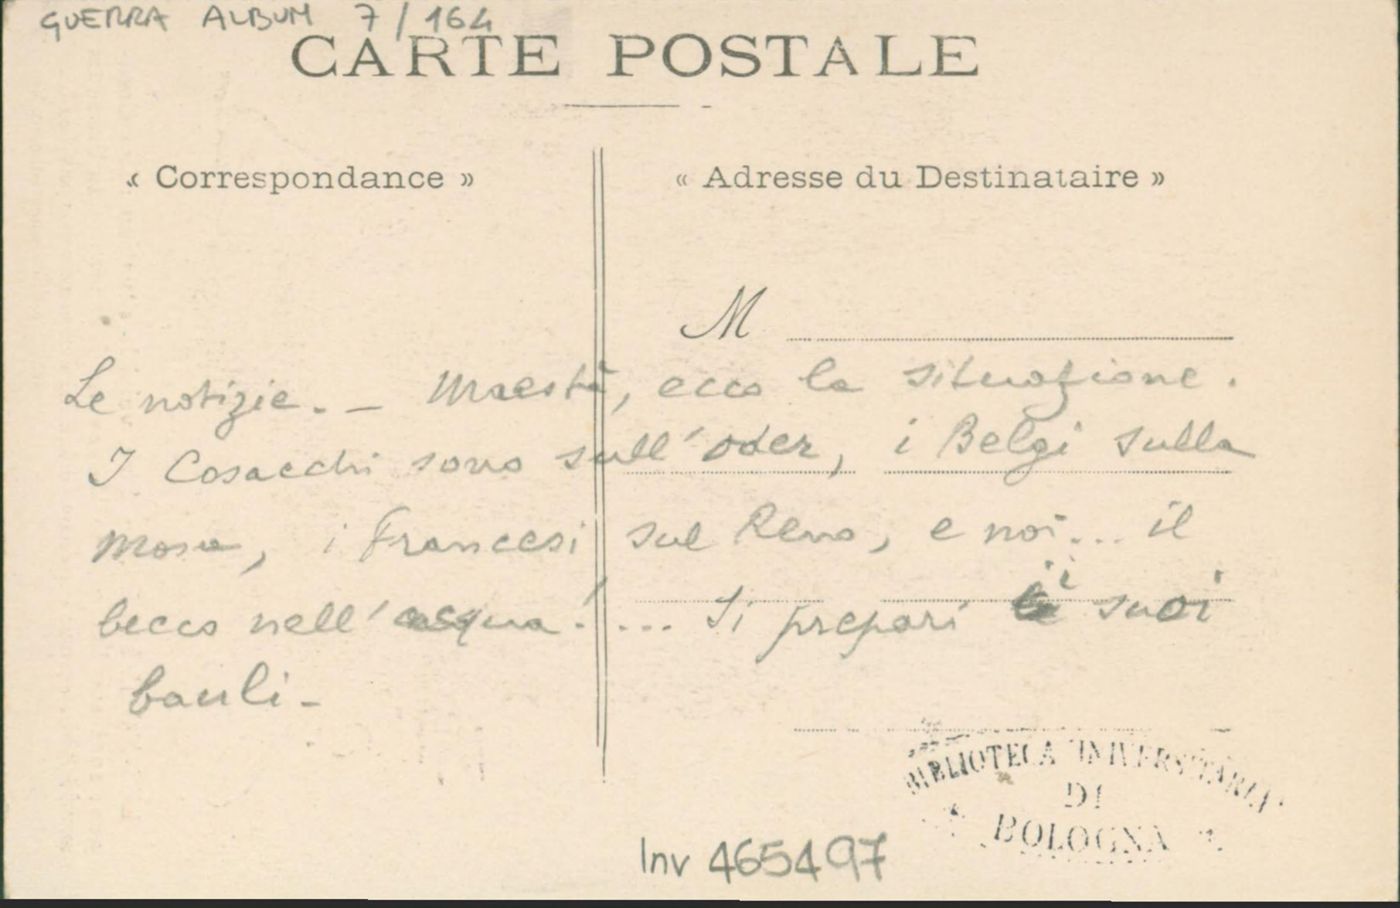 GUERRA ALBUM 7/164
CARTE POSTALE
« Correspondance »
« Adresse du Destinataire »
M
Le notizie. – Maestà, ecco la situazione.
I Cosacchi sono sull'Oder, i Belgi sulla
Mosa, i Francesi sul Reno, e noi... il
becco nell'acqua!... Si prepari i suoi
bauli –
BIBLIOTECA UNIVERSITARIA
DI
BOLOGNA
Inv 465497